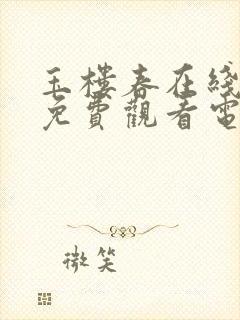 玉樓春在綫
免費觀看電
微笑